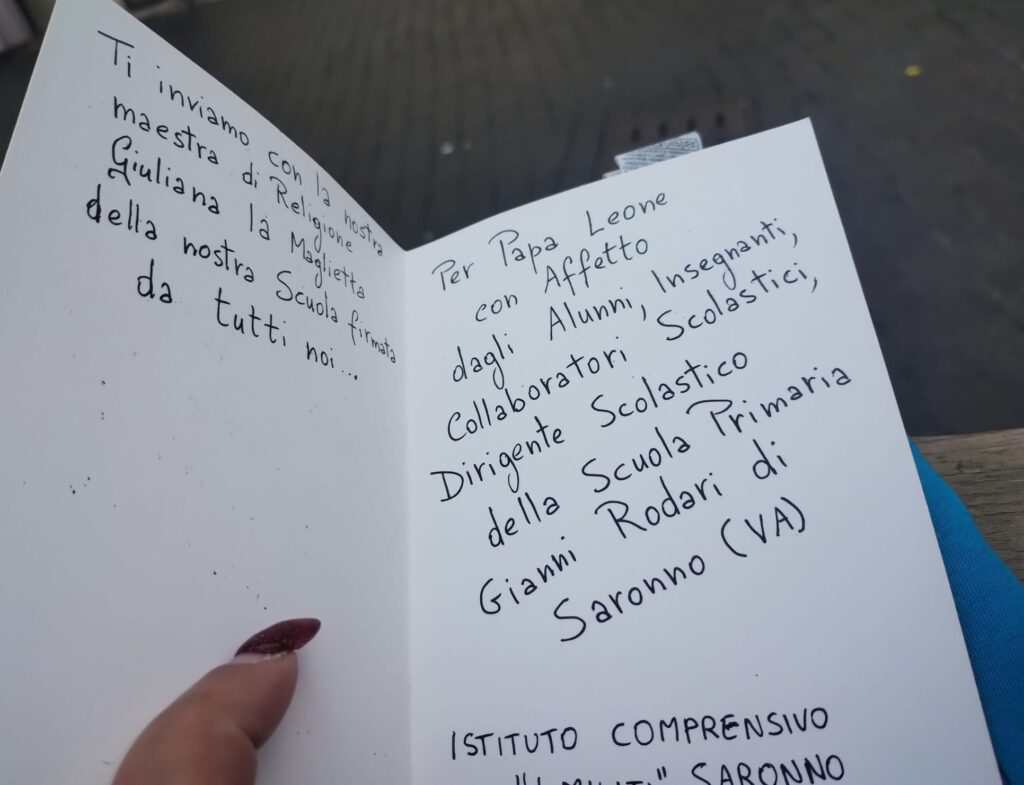 Ti inviamo con la nostra
maestra di Religione
Giuliana la Maglietta
della nostra Scuola firmata
da tutti noi...
Per Papa Leone
con Affetto
dagli Alunni, Insegnanti,
Collaboratori Scolastici,
Dirigente Scolastico
della Scuola Primaria
Gianni Rodari di
Saronno (VA)
ISTITUTO COMPRENSIVO
SARONNO